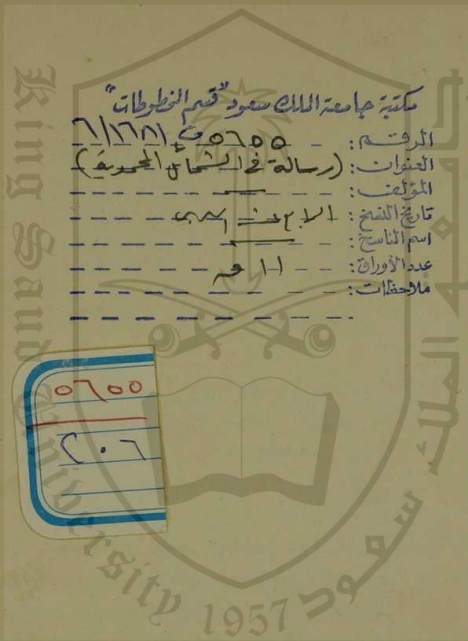 مكتبة جامعة الملك سعود "قسم المخطوطات"
الرقم: ٥٦٥٥ ف ٦/١٦٨١
العنوان: (رسالة في الشمائل المحمدية)
المؤلف: —
تاريخ النسخ: الرابع عشر
اسم الناسخ: —
عدد الأوراق: ١١ ق
ملاحظات:
٥٦٥٥
٢٠٦
King Saud University
1957
جامعة الملك سعود